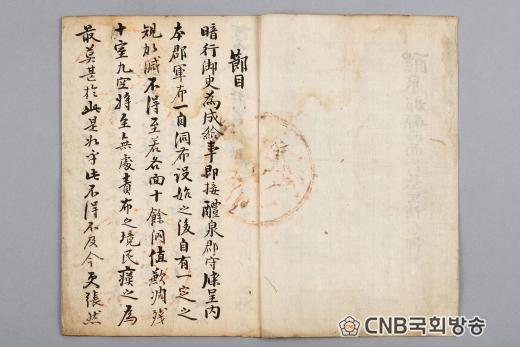 節目
暗行御史為成給事即接醴泉郡守牒呈內
本郡軍布一自洞布設始之後自有一定之
規加減不得至若各面十餘洞值歉凋殘
十室九空將至無處責布之境民瘼之為
最莫甚於此是如乎此不得不及今更張然
CNB국회방송